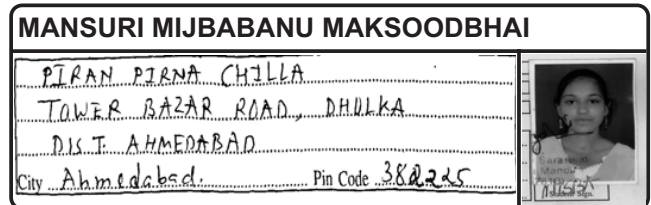 MANSURI MIJBABANU MAKSOODBHAI
PIRAN PIRNA CHILLA
TOWER BAZAR ROAD, DHOLKA
DIST. AHMEDABAD
City Ahmedabad. Pin Code 382225
Student Sign.